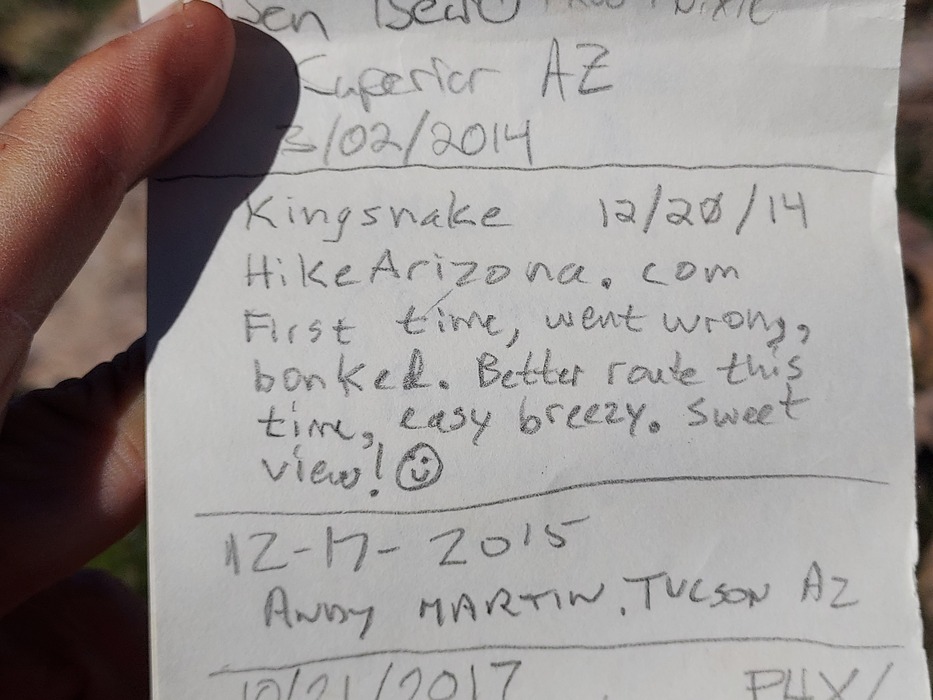 Superior AZ
3/02/2014
Kingsnake 12/20/14
HikeArizona.com
First time, went wrong,
bonked. Better route this
time, easy breezy. Sweet
view! ☺
12-17-2015
ANDY MARTIN, TUCSON AZ
10/21/2017 PHX/